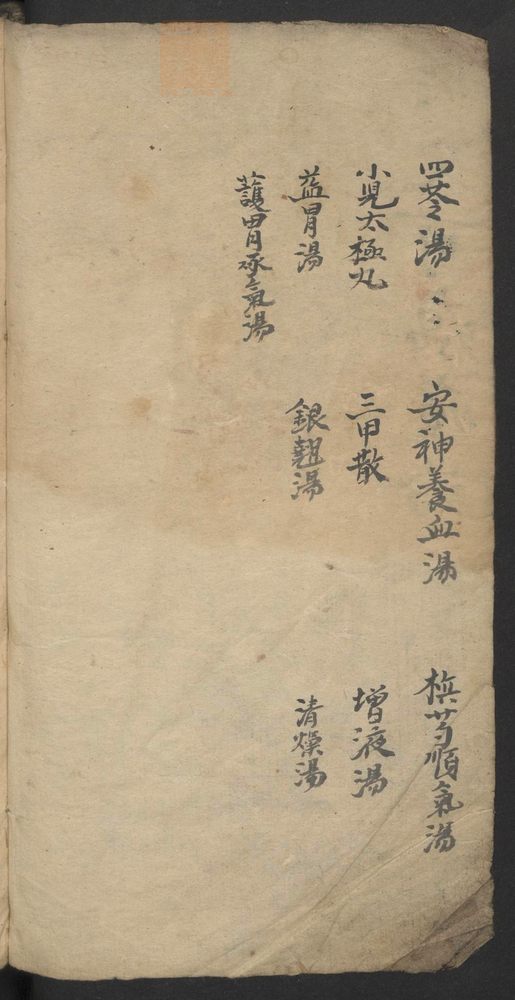 四苓湯 安神養血湯 槟芍順氣湯
小児太極丸 三甲散 增液湯
益胃湯 銀翹湯 清燥湯
護胃承氣湯